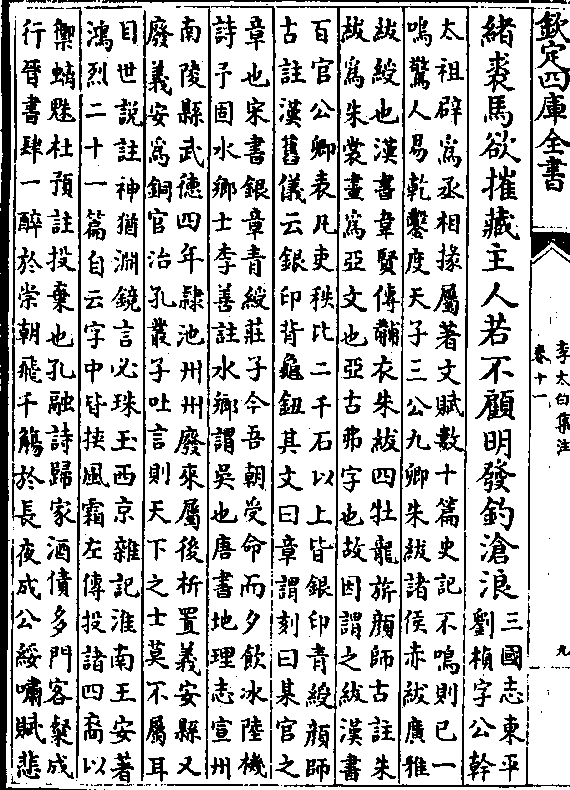 欽定四庫全書
李太白集注
卷十一
九
緒裘馬欲摧藏主人若不顧明發釣滄浪
三國志東平
劉楨字公幹
太祖辟為丞相掾屬著文賦數十篇史記不鳴則已一
鳴驚人易乾鑿度天子三公九卿朱紱諸侯赤紱廣雅
紱綬也漢書韋賢傳黼衣朱紱四牡龍旂顔師古註朱
紱為朱裳畫為亞文也亞古弗字也故因謂之紱漢書
百官公卿表凡吏秩比二千石以上皆銀印青綬顔師
古註漢舊儀云銀印背龜鈕其文曰章謂刻曰某官之
章也宋書銀章青綬莊子今吾朝受命而夕飲冰陸機
詩予固水鄉士李善註水鄉謂吳也唐書地理志宣州
南陵縣武德四年隷池州州廢來屬後析置義安縣又
廢義安為銅官治孔叢子吐言則天下之士莫不屬耳
目世說註神猶淵鏡言必珠玉西京雜記淮南王安著
鴻烈二十一篇自云字中皆挾風霜左傳投諸四裔以
禦螭魅杜預註投棄也孔融詩歸家酒債多門客粲成
行晉書肆一醉於崇朝飛千觴於長夜成公綏嘯賦悲